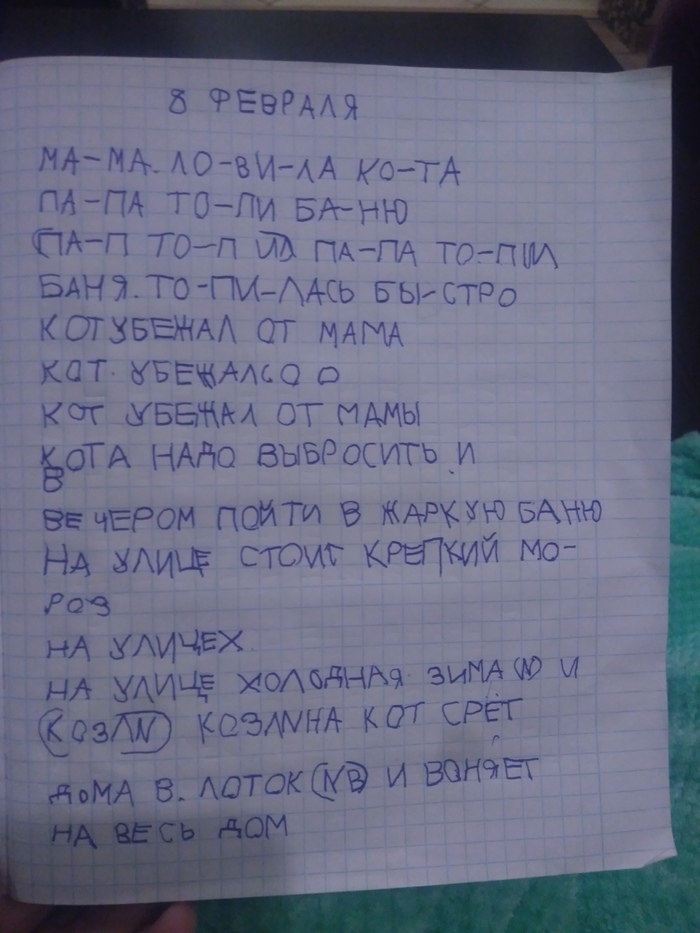 8 ФЕВРАЛЯ
МА-МА. ЛО-ВИ-ЛА КО-ТА
ПА-ПА ТО-ПИ БА-НЮ
(ПА-П ТО-П ИЛ) ПА-ПА ТО-ПИЛ
БАНЯ. ТО-ПИ-ЛАСЬ БЫ-СТРО
КОТ УБЕЖАЛ ОТ МАМА
КОТ. УБЕЖАЛСО О
КОТ УБЕЖАЛ ОТ МАМЫ
КОТА НАДО ВЫБРОСИТЬ И
В
ВЕЧЕРОМ ПОЙТИ В ЖАРКУЮ БАНЮ
НА УЛИЦЕ СТОИТ КРЕПКИЙ МО-
РОЗ
НА УЛИЦЕХ
НА УЛИЦЕ ХОЛОДНАЯ ЗИМА (N) И
(КОЗЛN) КОЗЛNНА КОТ СРЁТ
ДОМА В. ЛОТОК (NВ) И ВОНЯЕТ
НА ВЕСЬ ДОМ